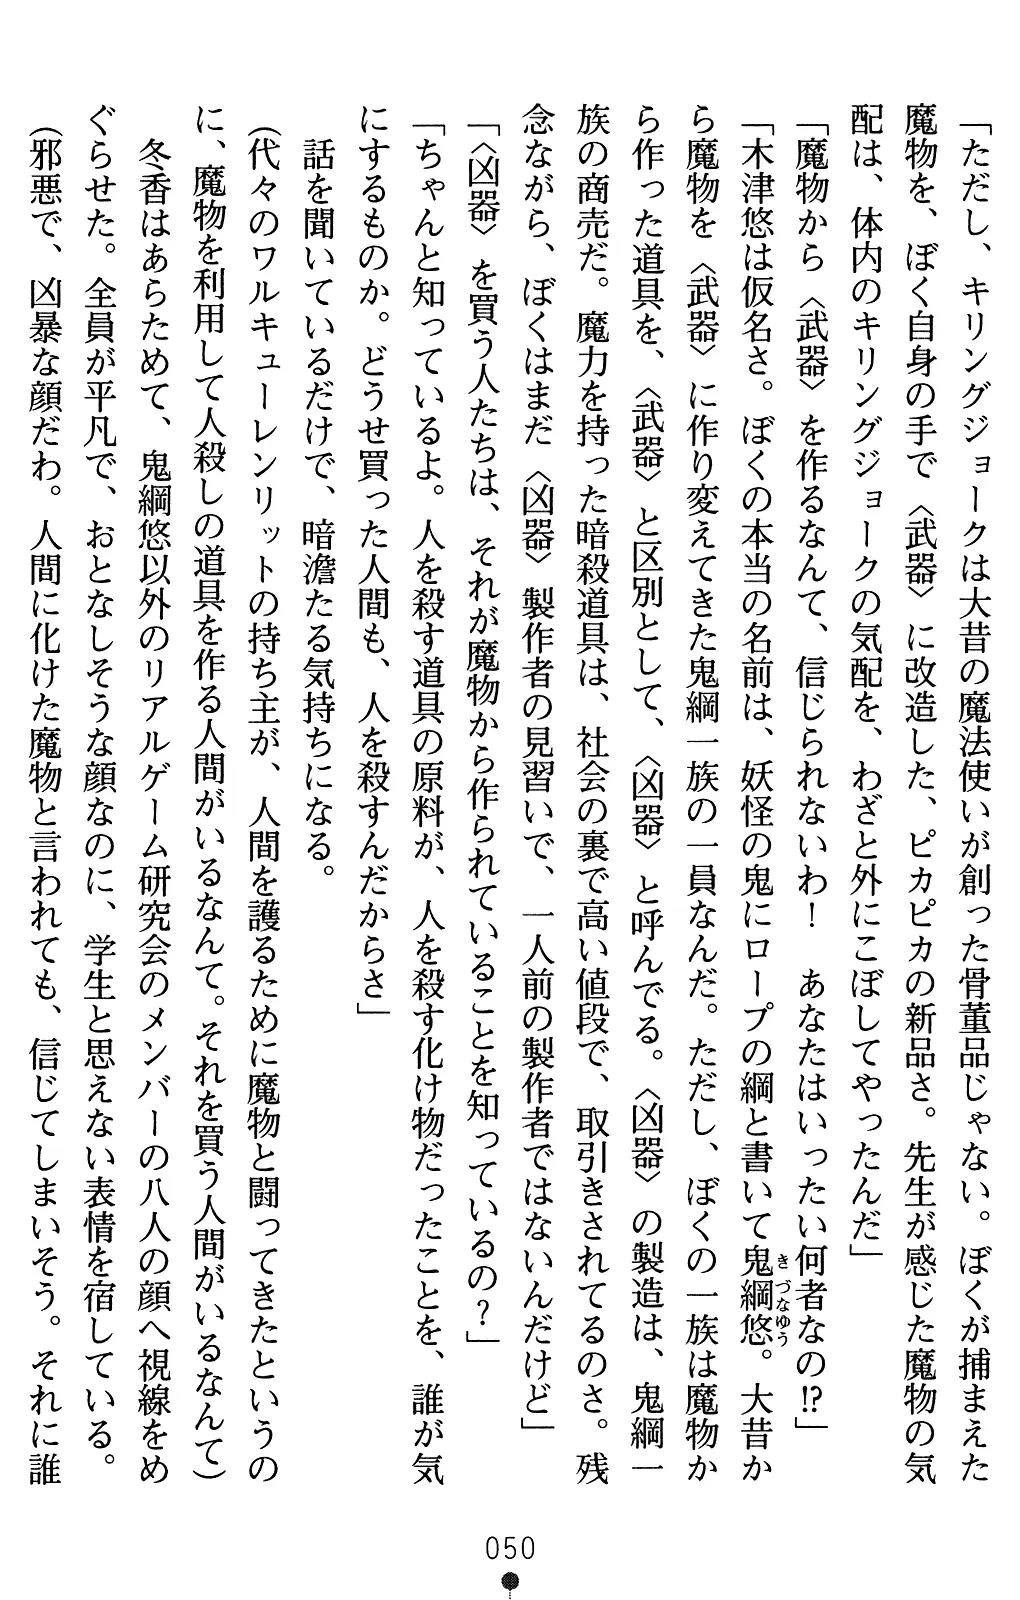 「ただし、キリングジョークは大昔の魔法使いが創った骨董品じゃない。ぼくが捕まえた
魔物を、ぼく自身の手で〈武器〉に改造した、ピカピカの新品さ。先生が感じた魔物の気
配は、体内のキリングジョークの気配を、わざと外にこぼしてやったんだ」
「魔物から〈武器〉を作るなんて、信じられないわ！　あなたはいったい何者なの!?」
「木津悠は仮名さ。ぼくの本当の名前は、妖怪の鬼にロープの綱と書いて鬼綱悠。大昔か
きづなゆう
ら魔物を〈武器〉に作り変えてきた鬼綱一族の一員なんだ。ただし、ぼくの一族は魔物か
ら作った道具を、〈武器〉と区別として、〈凶器〉と呼んでる。〈凶器〉の製造は、鬼綱一
族の商売だ。魔力を持った暗殺道具は、社会の裏で高い値段で、取引きされてるのさ。残
念ながら、ぼくはまだ〈凶器〉製作者の見習いで、一人前の製作者ではないんだけど」
「〈凶器〉を買う人たちは、それが魔物から作られていることを知っているの？」
「ちゃんと知っているよ。人を殺す道具の原料が、人を殺す化け物だったことを、誰が気
にするものか。どうせ買った人間も、人を殺すんだからさ」
　話を聞いているだけで、暗澹たる気持ちになる。
（代々のワルキューレンリットの持ち主が、人間を護るために魔物と闘ってきたというの
に、魔物を利用して人殺しの道具を作る人間がいるなんて。それを買う人間がいるなんて）
　冬香はあらためて、鬼綱悠以外のリアルゲーム研究会のメンバーの八人の顔へ視線をめ
ぐらせた。全員が平凡で、おとなしそうな顔なのに、学生と思えない表情を宿している。
（邪悪で、凶暴な顔だわ。人間に化けた魔物と言われても、信じてしまいそう。それに誰
050